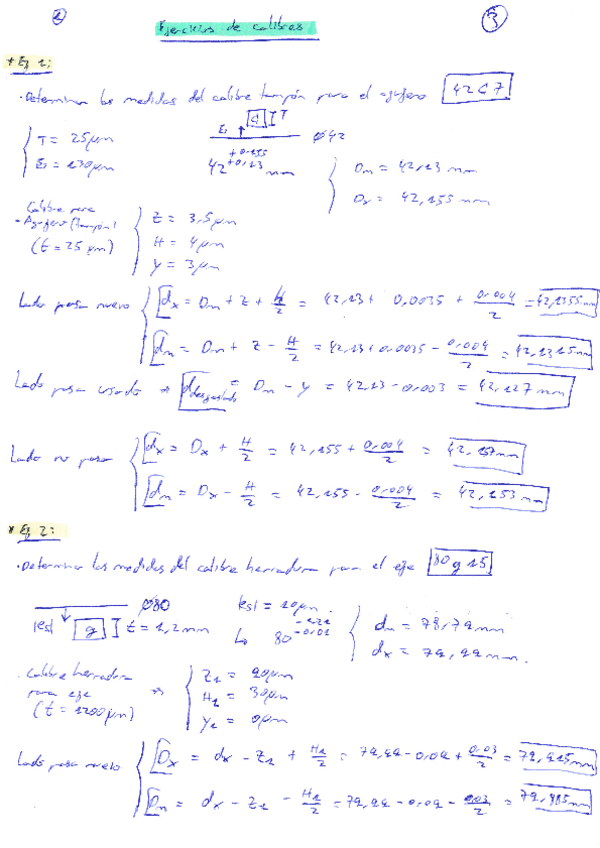 2
Ejercicios de calibres
3
* Ej 1:
· Determinar las medidas del calibre tampón para el agujero 42 C 7
T = 25 µm
Ei = 130 µm
Ei ↑ C I T
Ø42
42 +0.155 +0.13 mm
Dn = 42,13 mm
Dx = 42,155 mm
· Calibre para Agujero (tampón) (t = 25 µm)
Z = 3,5 µm
H = 4 µm
y = 3 µm
Lado pasa nuevo
dx = Dn + Z + H/2 = 42,13 + 0,0035 + 0.004/2 = 42,1355 mm
dn = Dn + Z - H/2 = 42,13 + 0,0035 - 0.004/2 = 42,1315 mm
Lado pasa usado ⇒ d desgastado = Dn - y = 42,13 - 0.003 = 42,127 mm
Lado no pasa
dx = Dx + H/2 = 42,155 + 0.004/2 = 42,157 mm
dn = Dx - H/2 = 42,155 - 0.004/2 = 42,153 mm
* Ej 2:
· Determinar las medidas del calibre herradura para el eje 80 g 15
Ø80
|es| ↓ g I t = 1,2 mm
|es| = 10 µm
↳ 80 -1.21 -0.01
dn = 78,79 mm
dx = 79,99 mm.
· Calibre herradura para eje (t = 1200 µm) ⇒
Z1 = 90 µm
H1 = 30 µm
y1 = 0 µm
Lado pasa nuevo
Dx = dx - Z1 + H1/2 = 79,99 - 0,09 + 0,03/2 = 79,915 mm
Dn = dx - Z1 - H1/2 = 79,99 - 0,09 - 0,03/2 = 79,885 mm